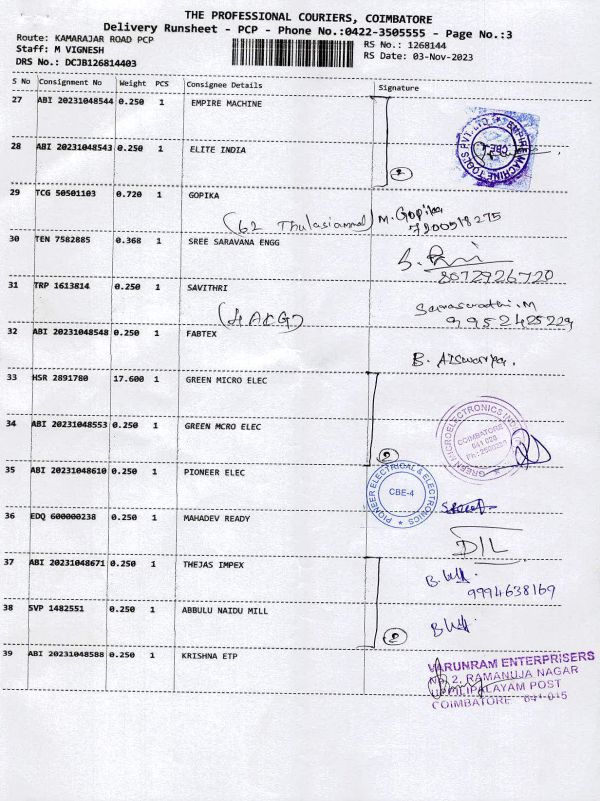 THE PROFESSIONAL COURIERS, COIMBATORE
Delivery Runsheet - PCP - Phone No.:0422-3505555 - Page No.:3
Route: KAMARAJAR ROAD PCP
RS No.: 1268144
Staff: M VIGNESH
RS Date: 03-Nov-2023
DRS No.: DCJB126814403
S No Consignment No Weight PCS Consignee Details Signature
27 ABI 20231048544 0.250 1 EMPIRE MACHINE
EMPIRE MACHINE TOOLS PVT. LTD.
CBE-
28 ABI 20231048543 0.250 1 ELITE INDIA
2
29 TCG 50501103 0.720 1 GOPIKA
(62 Thulasiammal) M. Gopika
30 TEN 7582885 0.368 1 SREE SARAVANA ENGG
8072926720
31 TRP 1613814 0.250 1 SAVITHRI
Saraswathi. M
32 ABI 20231048548 0.250 1 FABTEX
B. Aiswarya.
33 HSR 2891780 17.600 1 GREEN MICRO ELEC
GREEN MICROELECTRONICS
COIMBATORE
34 ABI 20231048553 0.250 1 GREEN MCRO ELEC
2
35 ABI 20231048610 0.250 1 PIONEER ELEC
PIONEER ELECTRICAL & ELECTRONICS
CBE-4
36 EDQ 600000238 0.250 1 MAHADEV READY
37 ABI 20231048671 0.250 1 THEJAS IMPEX
9994638169
38 SVP 1482551 0.250 1 ABBULU NAIDU MILL
2
39 ABI 20231048588 0.250 1 KRISHNA ETP
VARUNRAM ENTERPRISERS
NO. 2, RAMANUJA NAGAR
UPPILIPALAYAM POST
COIMBATORE 641 015